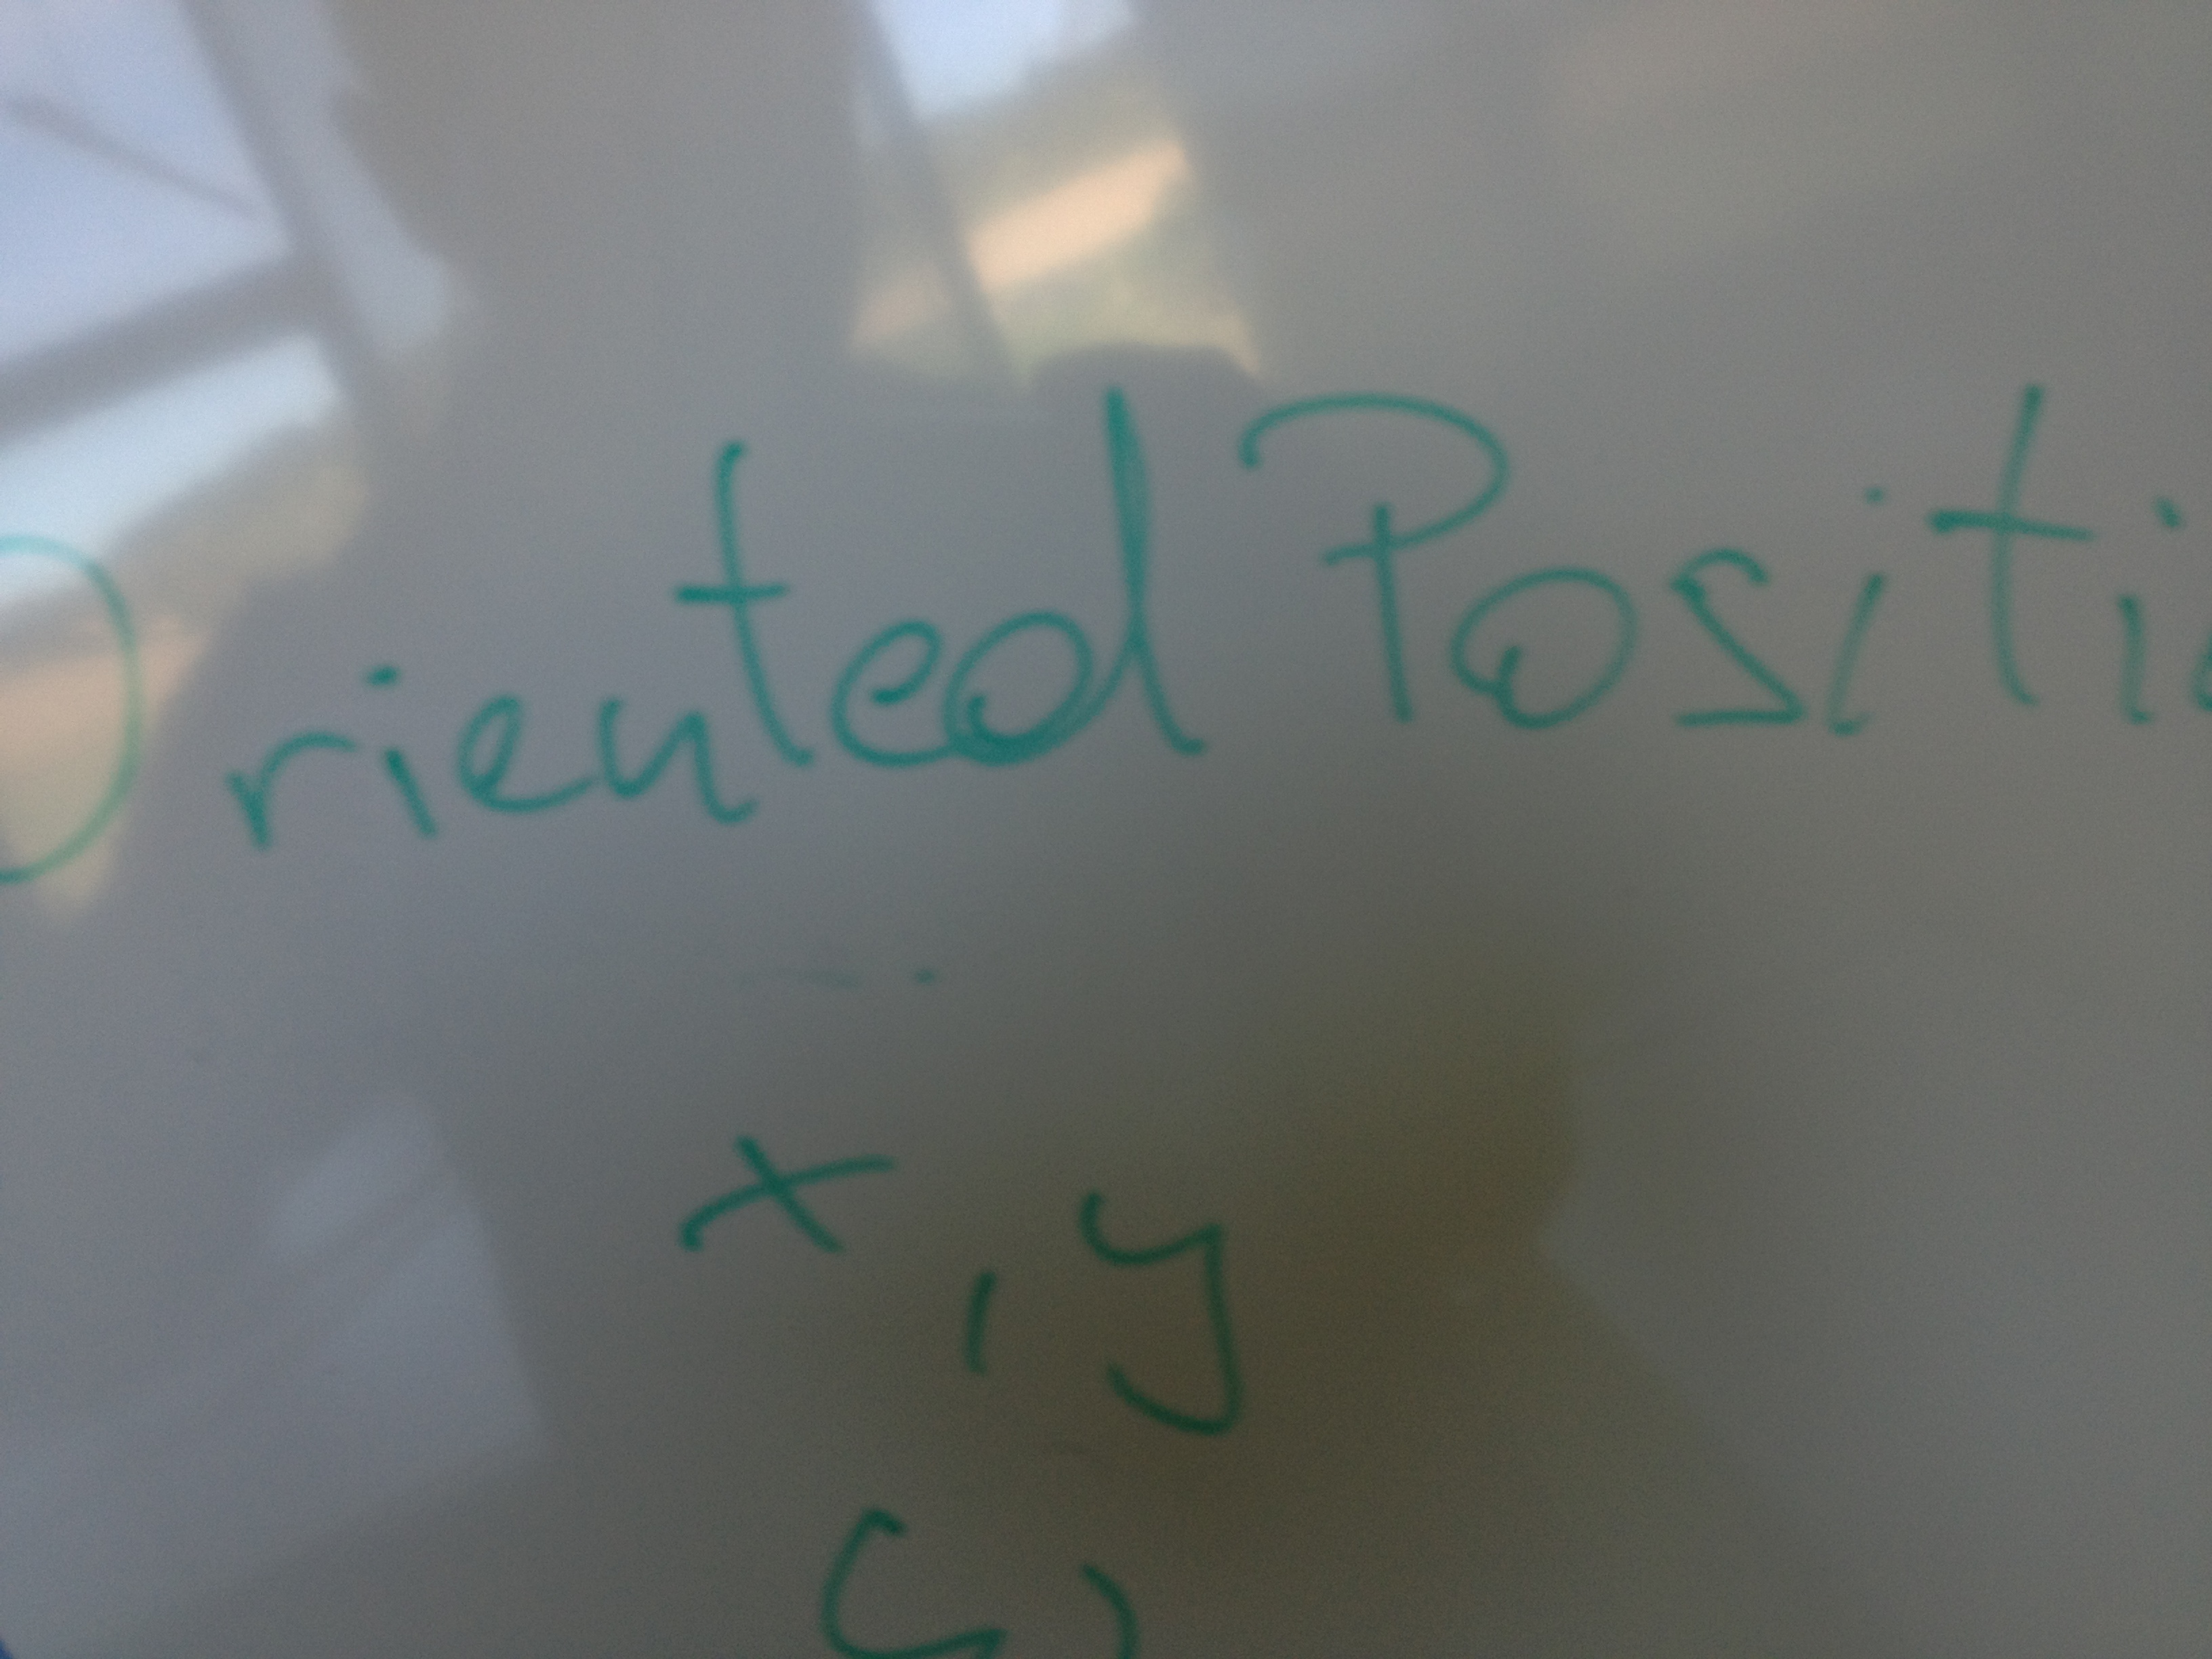 Oriented Positio
x, y